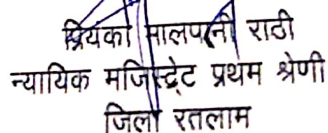 प्रियंका मालपानी राठी
न्यायिक मजिस्ट्रेट प्रथम श्रेणी
जिला रतलाम